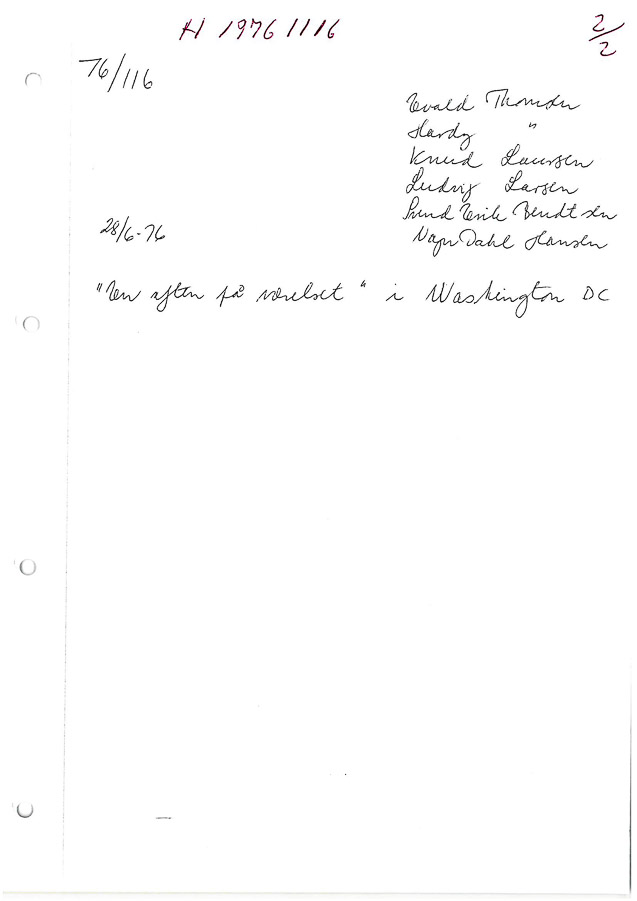 H 1976 1116
2/2
76/116
Evald Thomsen
Hardy "
Knud Laursen
Ludvig Larsen
Svend Erik Bendtsen
28/6-76
Vagn Dahl Hansen
"En aften på værelset" i Washington DC